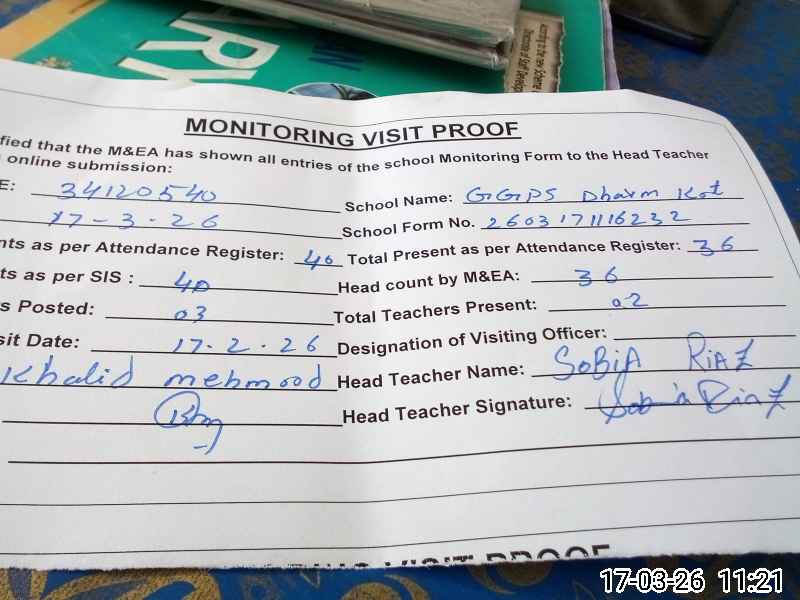 ARY
According to the new Scheme
MONITORING VISIT PROOF
fied that the M&EA has shown all entries of the school Monitoring Form to the Head Teacher
online submission:
E: 34120540 School Name: GGPS Dharm Kot
17-3-26 School Form No. 2603171116232
nts as per Attendance Register: 40 Total Present as per Attendance Register: 36
ts as per SIS : 40 Head count by M&EA: 36
s Posted: 03 Total Teachers Present: 02
sit Date: 17-2-26 Designation of Visiting Officer:
Khalid mehmood Head Teacher Name: SoBiA RiAZ
Head Teacher Signature: Sobia Riaz
VISIT PROOF
17-03-26 11:21